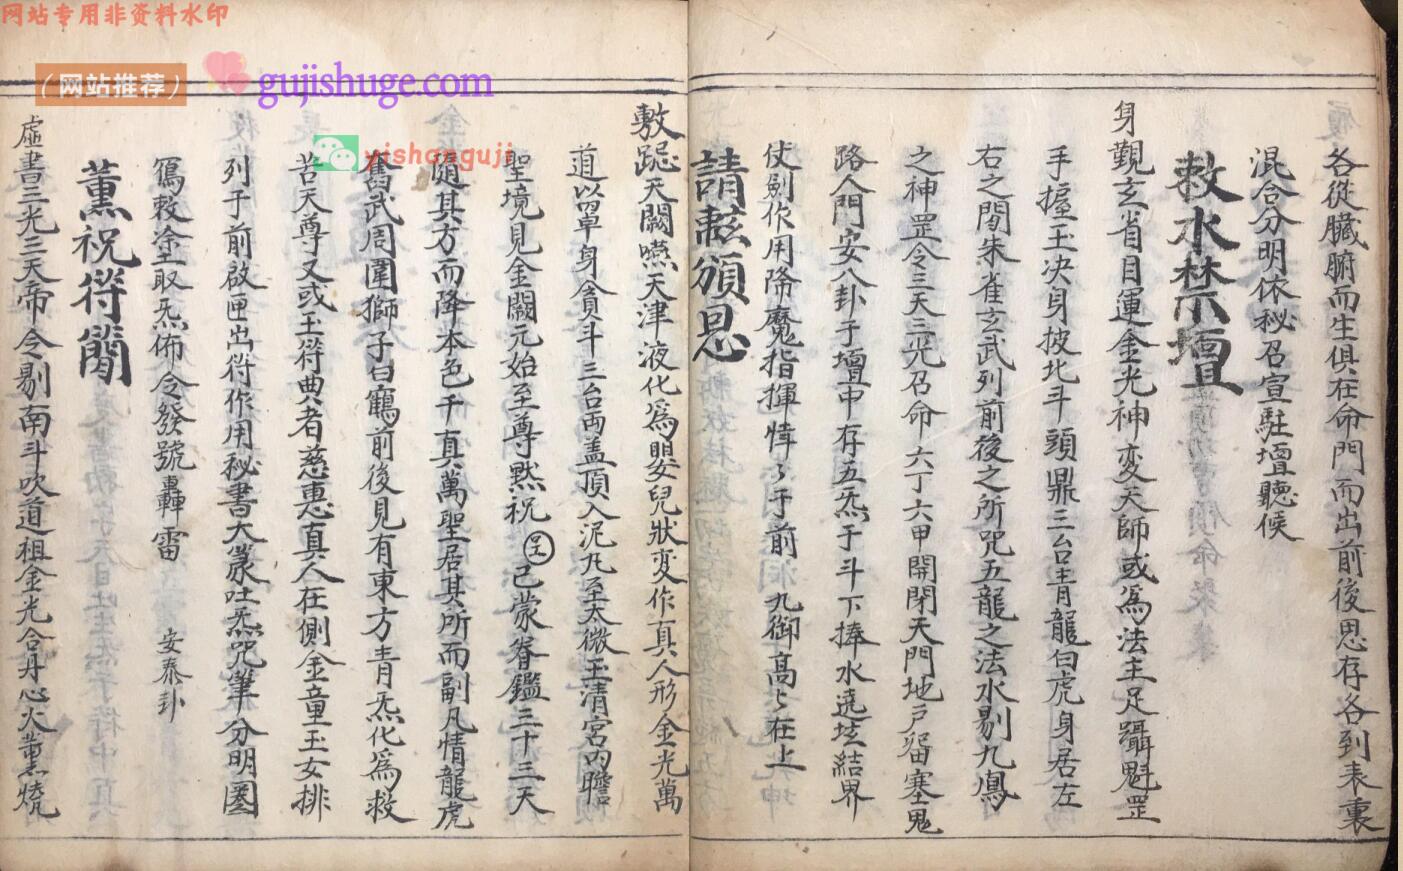 网站专用非资料水印
（网站推荐）
gujishuge.com
yishanguji
各從臟腑而生俱在命門而出前後思存各到表裏
混合分明依秘召宣駐壇聽候
敕水禁壇
身覲玄省目運金光神変天師或為法主足躡魁罡
手握玉决身披北斗頭鼎三台青龍白虎身居左
右之間朱雀玄武列前後之所咒五龍之法水剔九鳳
之神罡令三天三光召命六丁六甲開閉天門地戶留塞鬼
路人門安八卦于壇中存五炁于斗下捧水遶坛結界
仗劍作用降魔指揮于前九御高々在上
請頒恩
敷跽天闕嚥天津液化爲嬰兒狀变作真人形金光萬
道以罩身貪斗三台両盖頂入泥丸至太微玉清宮内瞻
聖境見金闕元始至尊黙祝已蒙眷鑑三十三天
隨其方而降本色千真萬聖居其所而副凡情龍虎
奮武周圍獅子白鶴前後見有東方青炁化為救
苦天尊又或玉符典者慈惠真人在側金童玉女排
列于前啟匣出符作用秘書大篆吐炁咒筆分明圏
寫敕塗取炁佈令發號轟雷 安泰卦
薫祝符簡
虛書三光三天帝令剔南斗吹道祖金光合丹心火薫燒